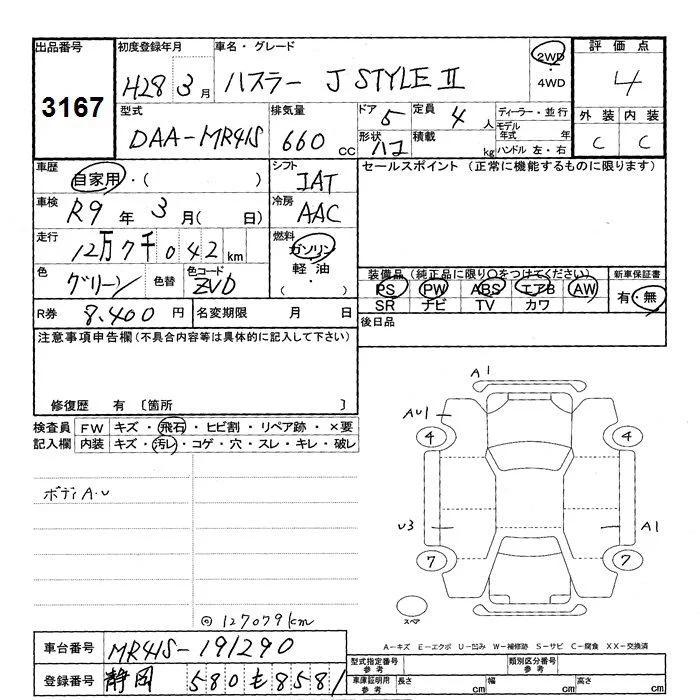 出品番号 初度登録年月 車名・グレード 評価点
3167 H28 3月 ハスラー J STYLE II 2WD ・ 4WD 4
型式 排気量 ドア 5 定員 4人 ディーラー・並行 外装 内装
DAA-MR41S 660 CC 形状 ハコ 積載 kg モデル年式 年 ハンドル 左・右 C C
車歴 自家用・( ) シフト IAT セールスポイント (正常に機能するものに限ります)
車検 R9年 3月( 日) 冷房 AAC
走行 12万7千042km 燃料 ガソリン 軽油 ( ・ )
色 グリーン 色替 色コード ZVD 装備品(純正品に限り○をつけてください) 新車保証書
PS PW ABS エアB AW 有・無
SR ナビ TV カワ
R券 8,400円 名変期限 月 日 後日品
注意事項申告欄(不具合内容等は具体的に記入して下さい)
修復歴 有 〔箇所 〕
検査員 FW キズ・飛石・ヒビ割・リペア跡・×要
記入欄 内装 キズ・汚レ・コゲ・穴・スレ・キレ・破レ
ボディA・U
◎127079km
A1
AU1
4 4
U3 A1
7 7
スペア
A-キズ E-エクボ U-凹み W-補修跡 S-サビ C-腐食 XX-交換済
車台番号 MR41S-191290
登録番号 静岡 580 も 8581
型式指定番号 参考 類別区分番号 参考
車庫証明用 参考 長さ cm 幅 cm 高さ cm